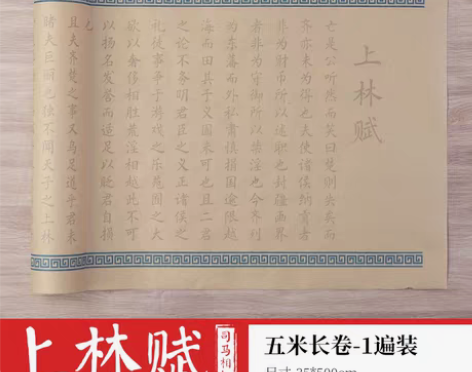 上林赋
亡是公听然而笑曰楚则失矣而
齐亦未为得也夫使诸侯纳贡者
非为财币所以述职也封疆画界
者非为守御所以禁淫也今齐列
为东藩而外私肃慎捐国逾限越
海而田其于义固未可也且二君
之论不务明君臣之义正诸侯之
礼徒事争于游戏之乐苑囿之大
欲以奢侈相胜荒淫相越此不可
以扬名发誉而适足以贬君自损
也
且夫齐楚之事又乌足道乎君未
睹夫巨丽也独不闻天子之上林
上林赋
司马相
五米长卷-1遍装
尺寸 35*500cm